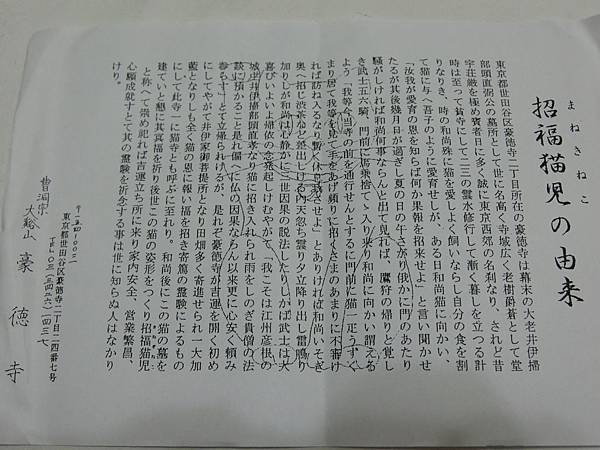 まねきねこ
招福猫児の由来
東京都世田谷区豪徳寺二丁目所在の豪徳寺は幕末の大老井伊掃
部頭直弼公の墓所として世に名高く寺域広く老樹爵蒼として堂
宇荘厳を極め賽者日に多く誠に東京西郊の名刹なり、されど昔
時は至って貧寺にして二三の雲水修行して漸く暮しを立つる計
りなりき、時の和尚殊に猫を愛しよく飼いならし自分の食を割
て猫に与へ吾子のように愛育せしが、ある日和尚猫に向かい、
「汝我が愛育の恩を知らば何か果報を招来せよ」と言い聞かせ
たるが其後幾月日が過ぎし夏の日の午さがり俄かに門のあたり
騒がしければ和尚何事ならんと出て見れば、鷹狩の帰りと覚し
き武士五六騎、門前に馬乗捨て入り来り和尚に向かい謂える
よう「我等今当寺の前を通行せんとするに門前に猫一疋うずく
まり居て我等を見て手をあげ頻りに招くさまのあまりに不審け
れば訪ね入るなり暫く休息致させよ」とありければ和尚いそぎ
奥へ招じ渋茶など差出しける内天忽ち雲り夕立降り出し雷鳴り
加りしが和尚は心静かに三世因果の説法したりしかば武士は大
喜びいよいよ帰依の念発起しけむやがて「我こそは江州彦根の
城主井伊掃部頭直孝なり猫に招き入れられ雨をしのぎ貴僧の法
談に預かること是れ偏へに仏の因果ならん以来更に心安く頼み
参らす」とて立帰られけるが、是れぞ豪徳寺が吉運を開く初め
にしてやがて井伊家御菩提所となり田畑多く寄進せられ一大加
藍となりしも全く猫の恩に報い福を招き寄篤の霊験によるもの
にして此寺一に猫寺とも呼ぶに至れり。和尚後にこの猫の墓を
建ていと懇に其冥福を祈り後世この猫の姿形をつくり招福猫児
と称へて崇め祀れば吉運立ち所に来り家内安全、営業繁昌、
心願成就すとて其の霊験を祈念する事は世に知らぬ人はなかり
けり。
曹洞宗
大谿山 豪徳寺
東京都世田谷区豪徳寺二丁目二四番七号